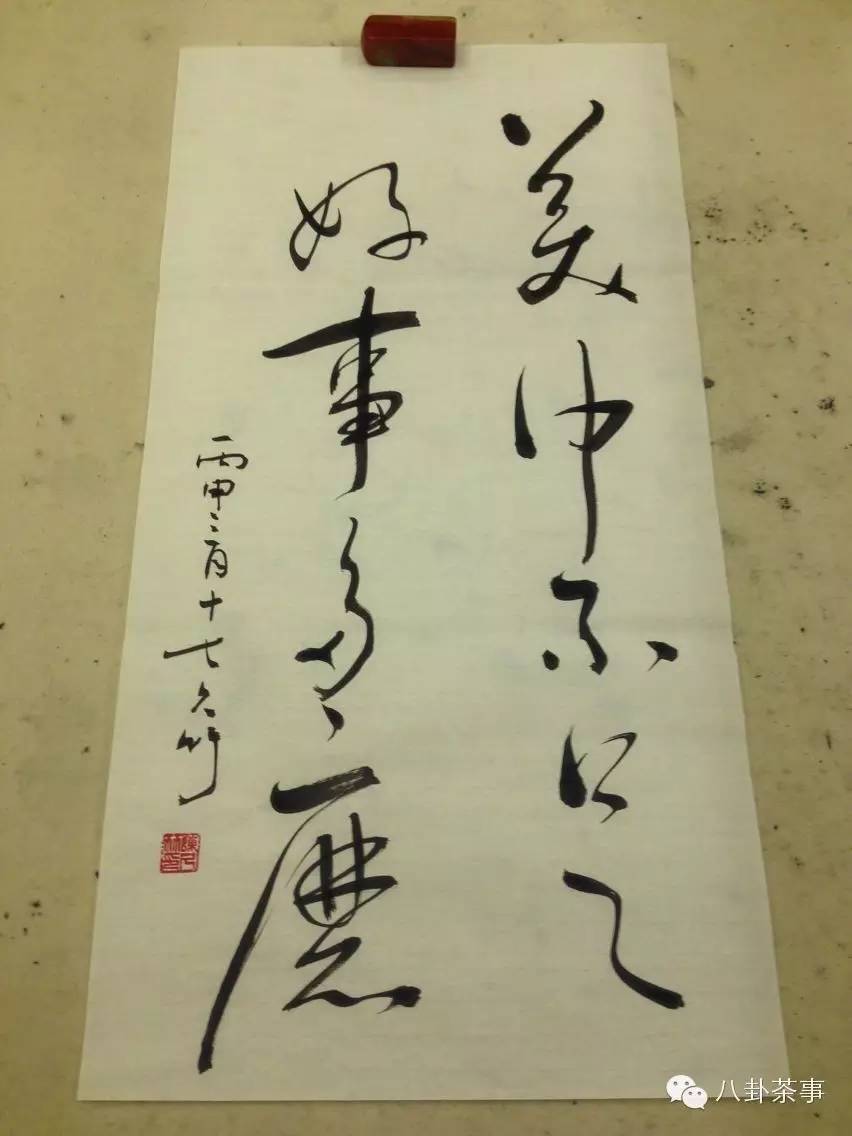 美中不足
好事多磨
丙申三月十七久竹
八卦茶事